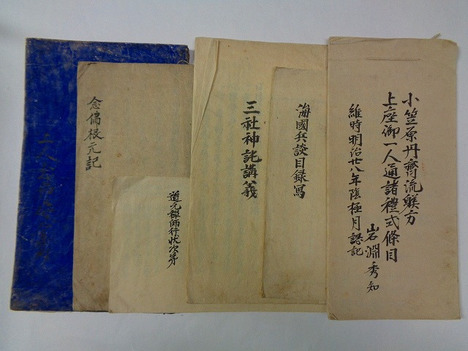 小笠原丹齊流躾方
上座御一人通諸禮式條目
維時明治廿八年陰極月認記
岩淵秀知
海國兵談目録寫
三社神詫講義
道元禅師行状次第
根元記